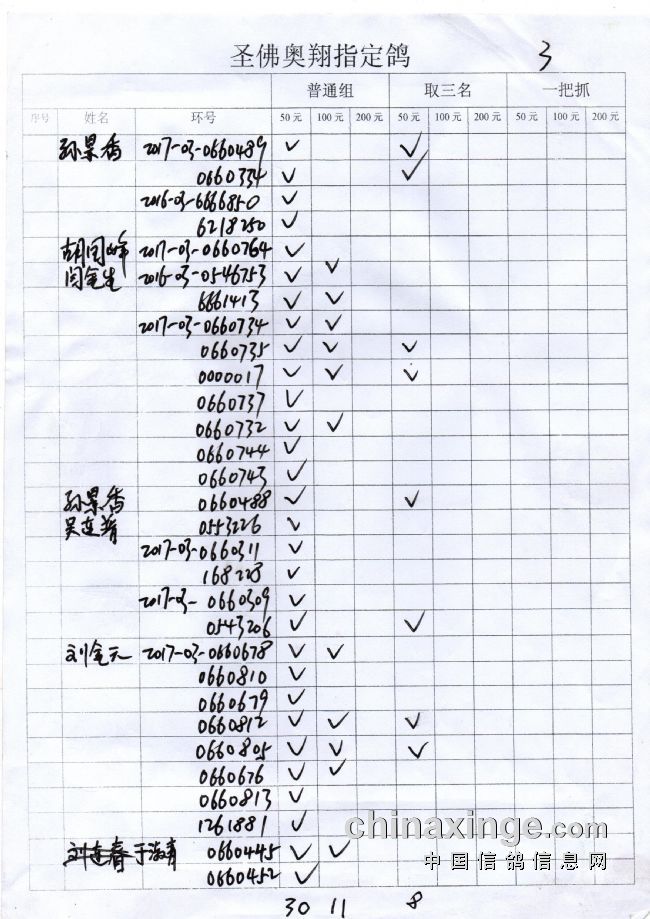 圣佛奥翔指定鸽 3
普通组 取三名 一把抓
序号 姓名 环号 50元 100元 200元 50元 100元 200元 50元 100元 200元
孙景香 2017-03-0660489 ✓ ✓
0660334 ✓ ✓
2016-03-6666850 ✓
6218250 ✓
胡闯峰 2017-03-0660764 ✓
闫金生 2016-03-0546753 ✓ ✓
6661413 ✓ ✓
2017-03-0660734 ✓ ✓
0660735 ✓ ✓ ✓
0000017 ✓ ✓ ✓
0660737 ✓
0660732 ✓ ✓
0660744 ✓
0660743 ✓
孙景香 0660488 ✓ ✓
吴连 0553226 ✓
2017-03-0660311 ✓
168228 ✓
2017-03-0660309 ✓
0543206 ✓ ✓
刘金元 2017-03-0660678 ✓ ✓
0660810 ✓
0660679 ✓
0660812 ✓ ✓ ✓
0660805 ✓ ✓ ✓
0660676 ✓ ✓
0660813 ✓
1261881 ✓
刘连春 于海青 0660445 ✓ ✓
0660452 ✓
30 11 8
chinaxinge.com
中国信鸽信息网